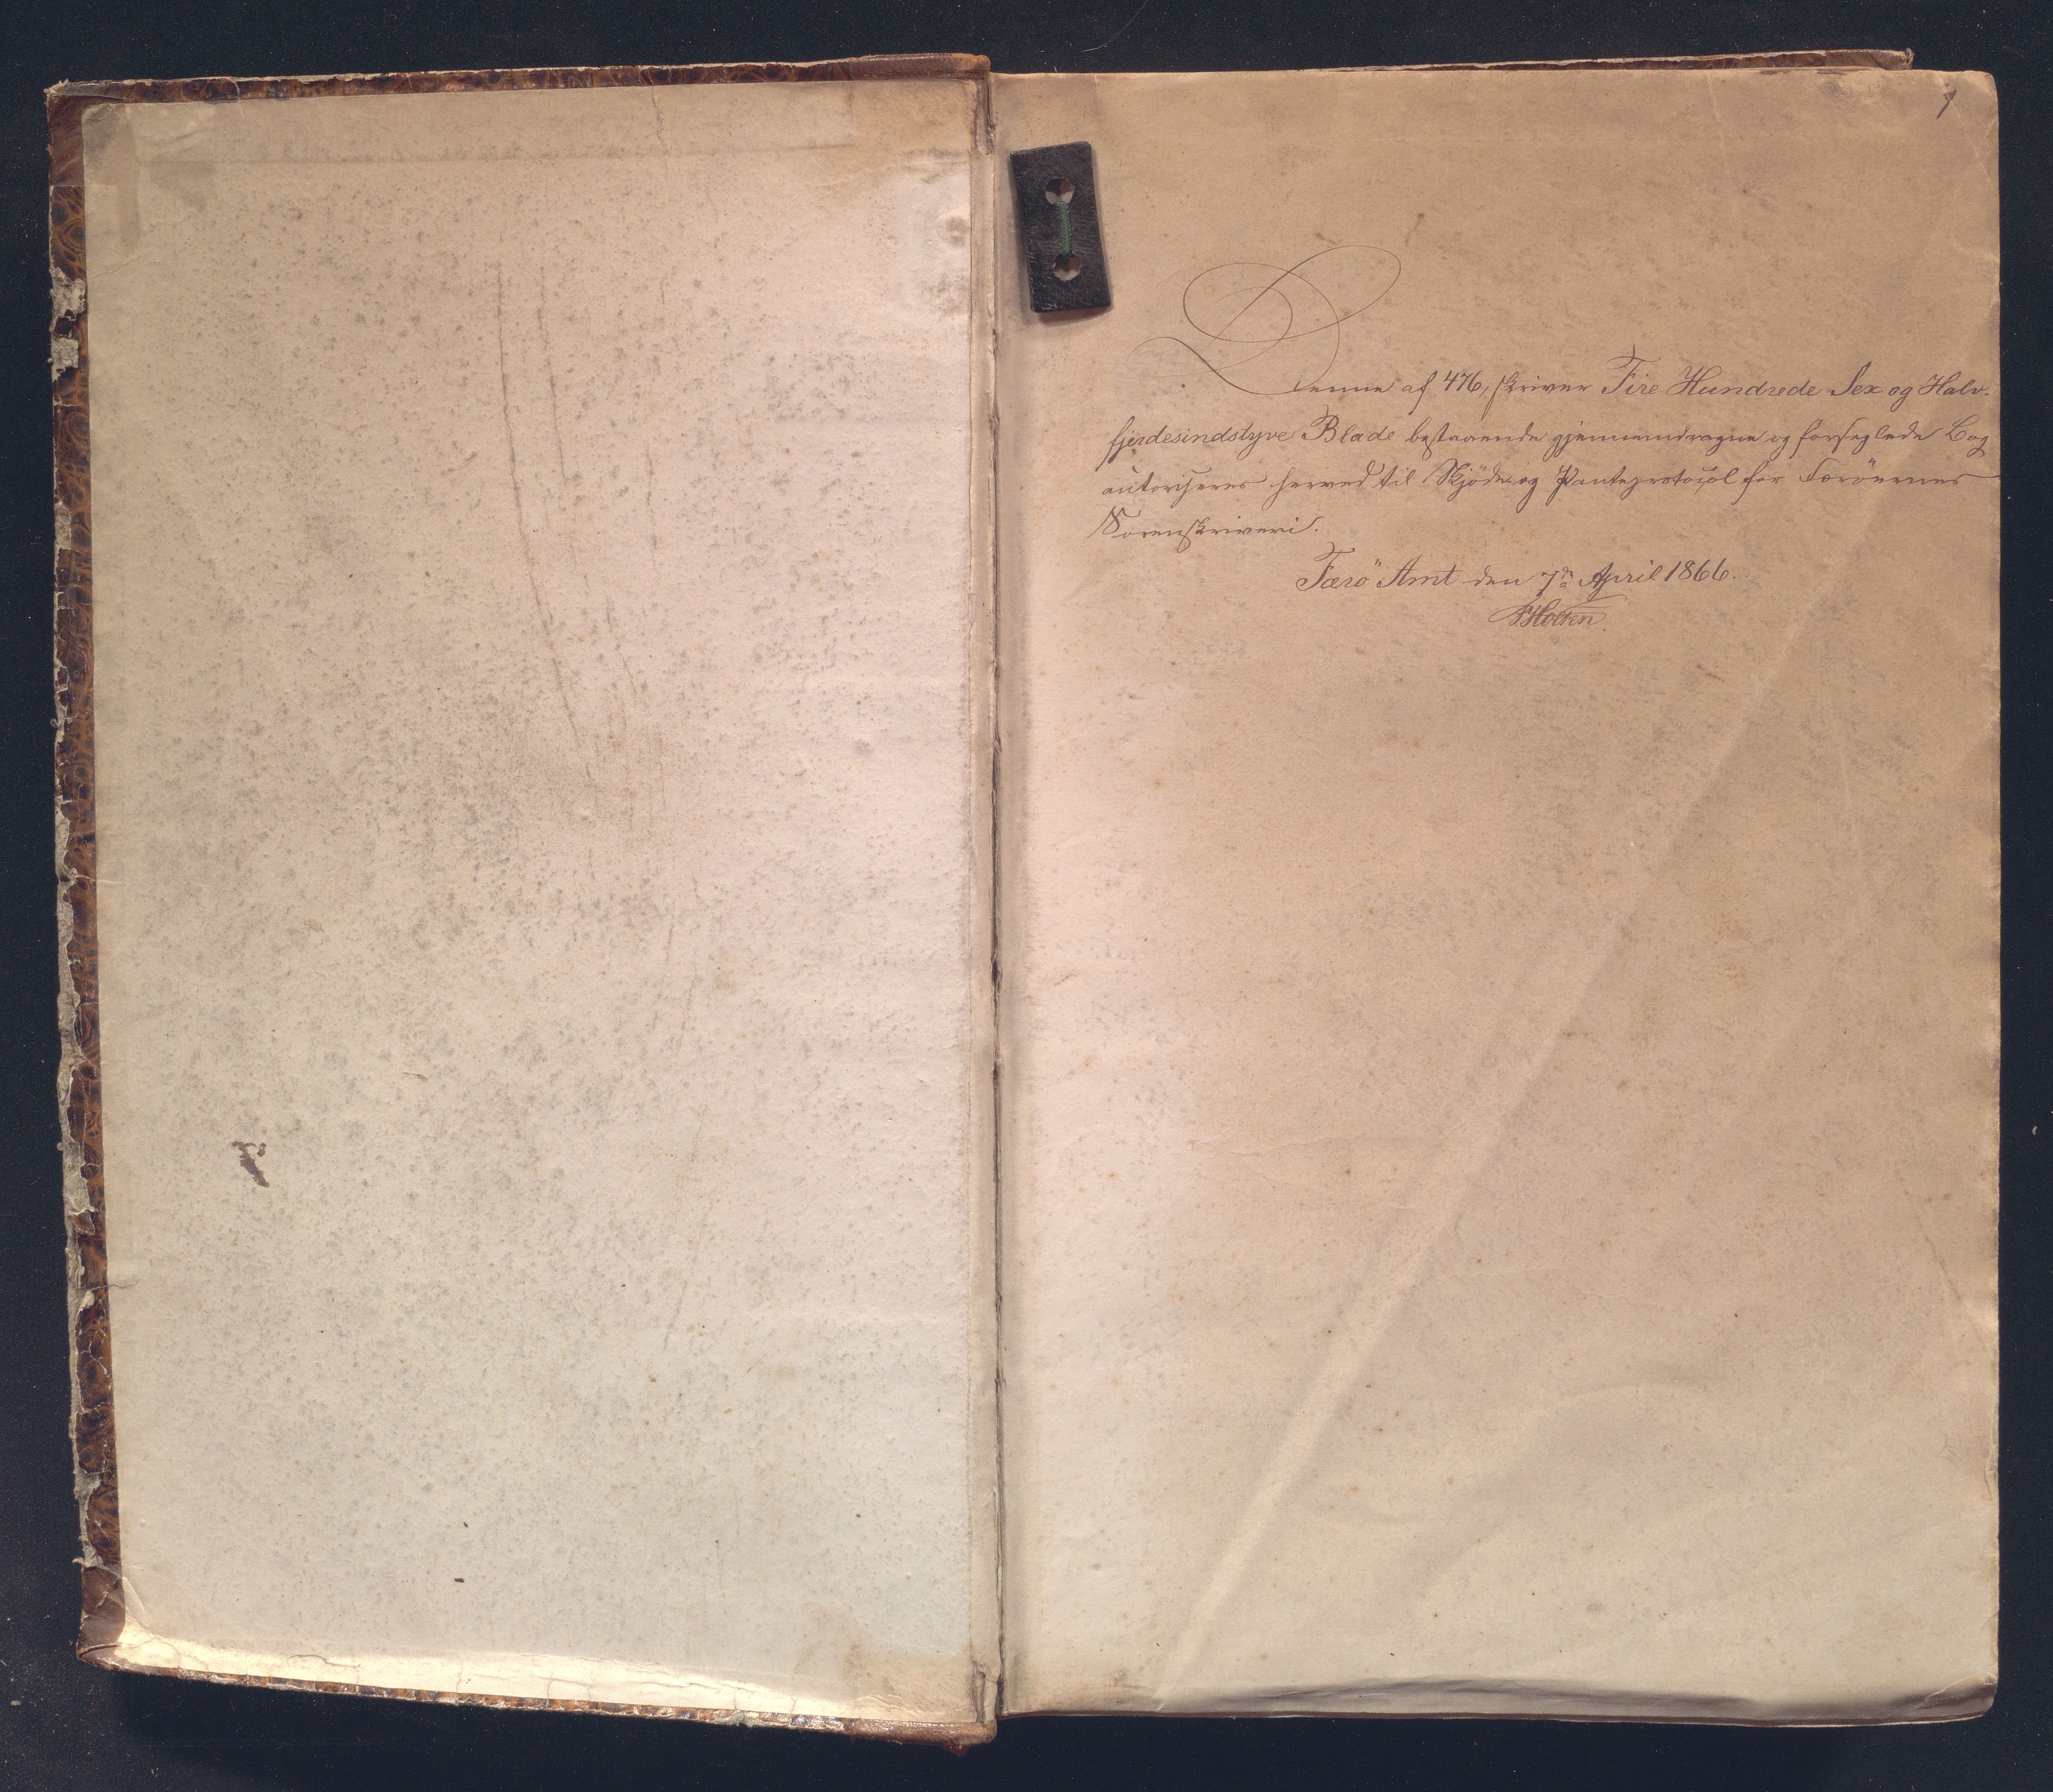 1
Denne af 476, skriver Fire Hundrede Sex og Halv-
fjerdesindstyve Blade bestaaende gjennemdragne og forseglede Bog
autoriseres herved til Skjöde og Panteprotocol for Færöernes
Sorenskriveri.
Færö Amt den 7de April 1866.
HHolten